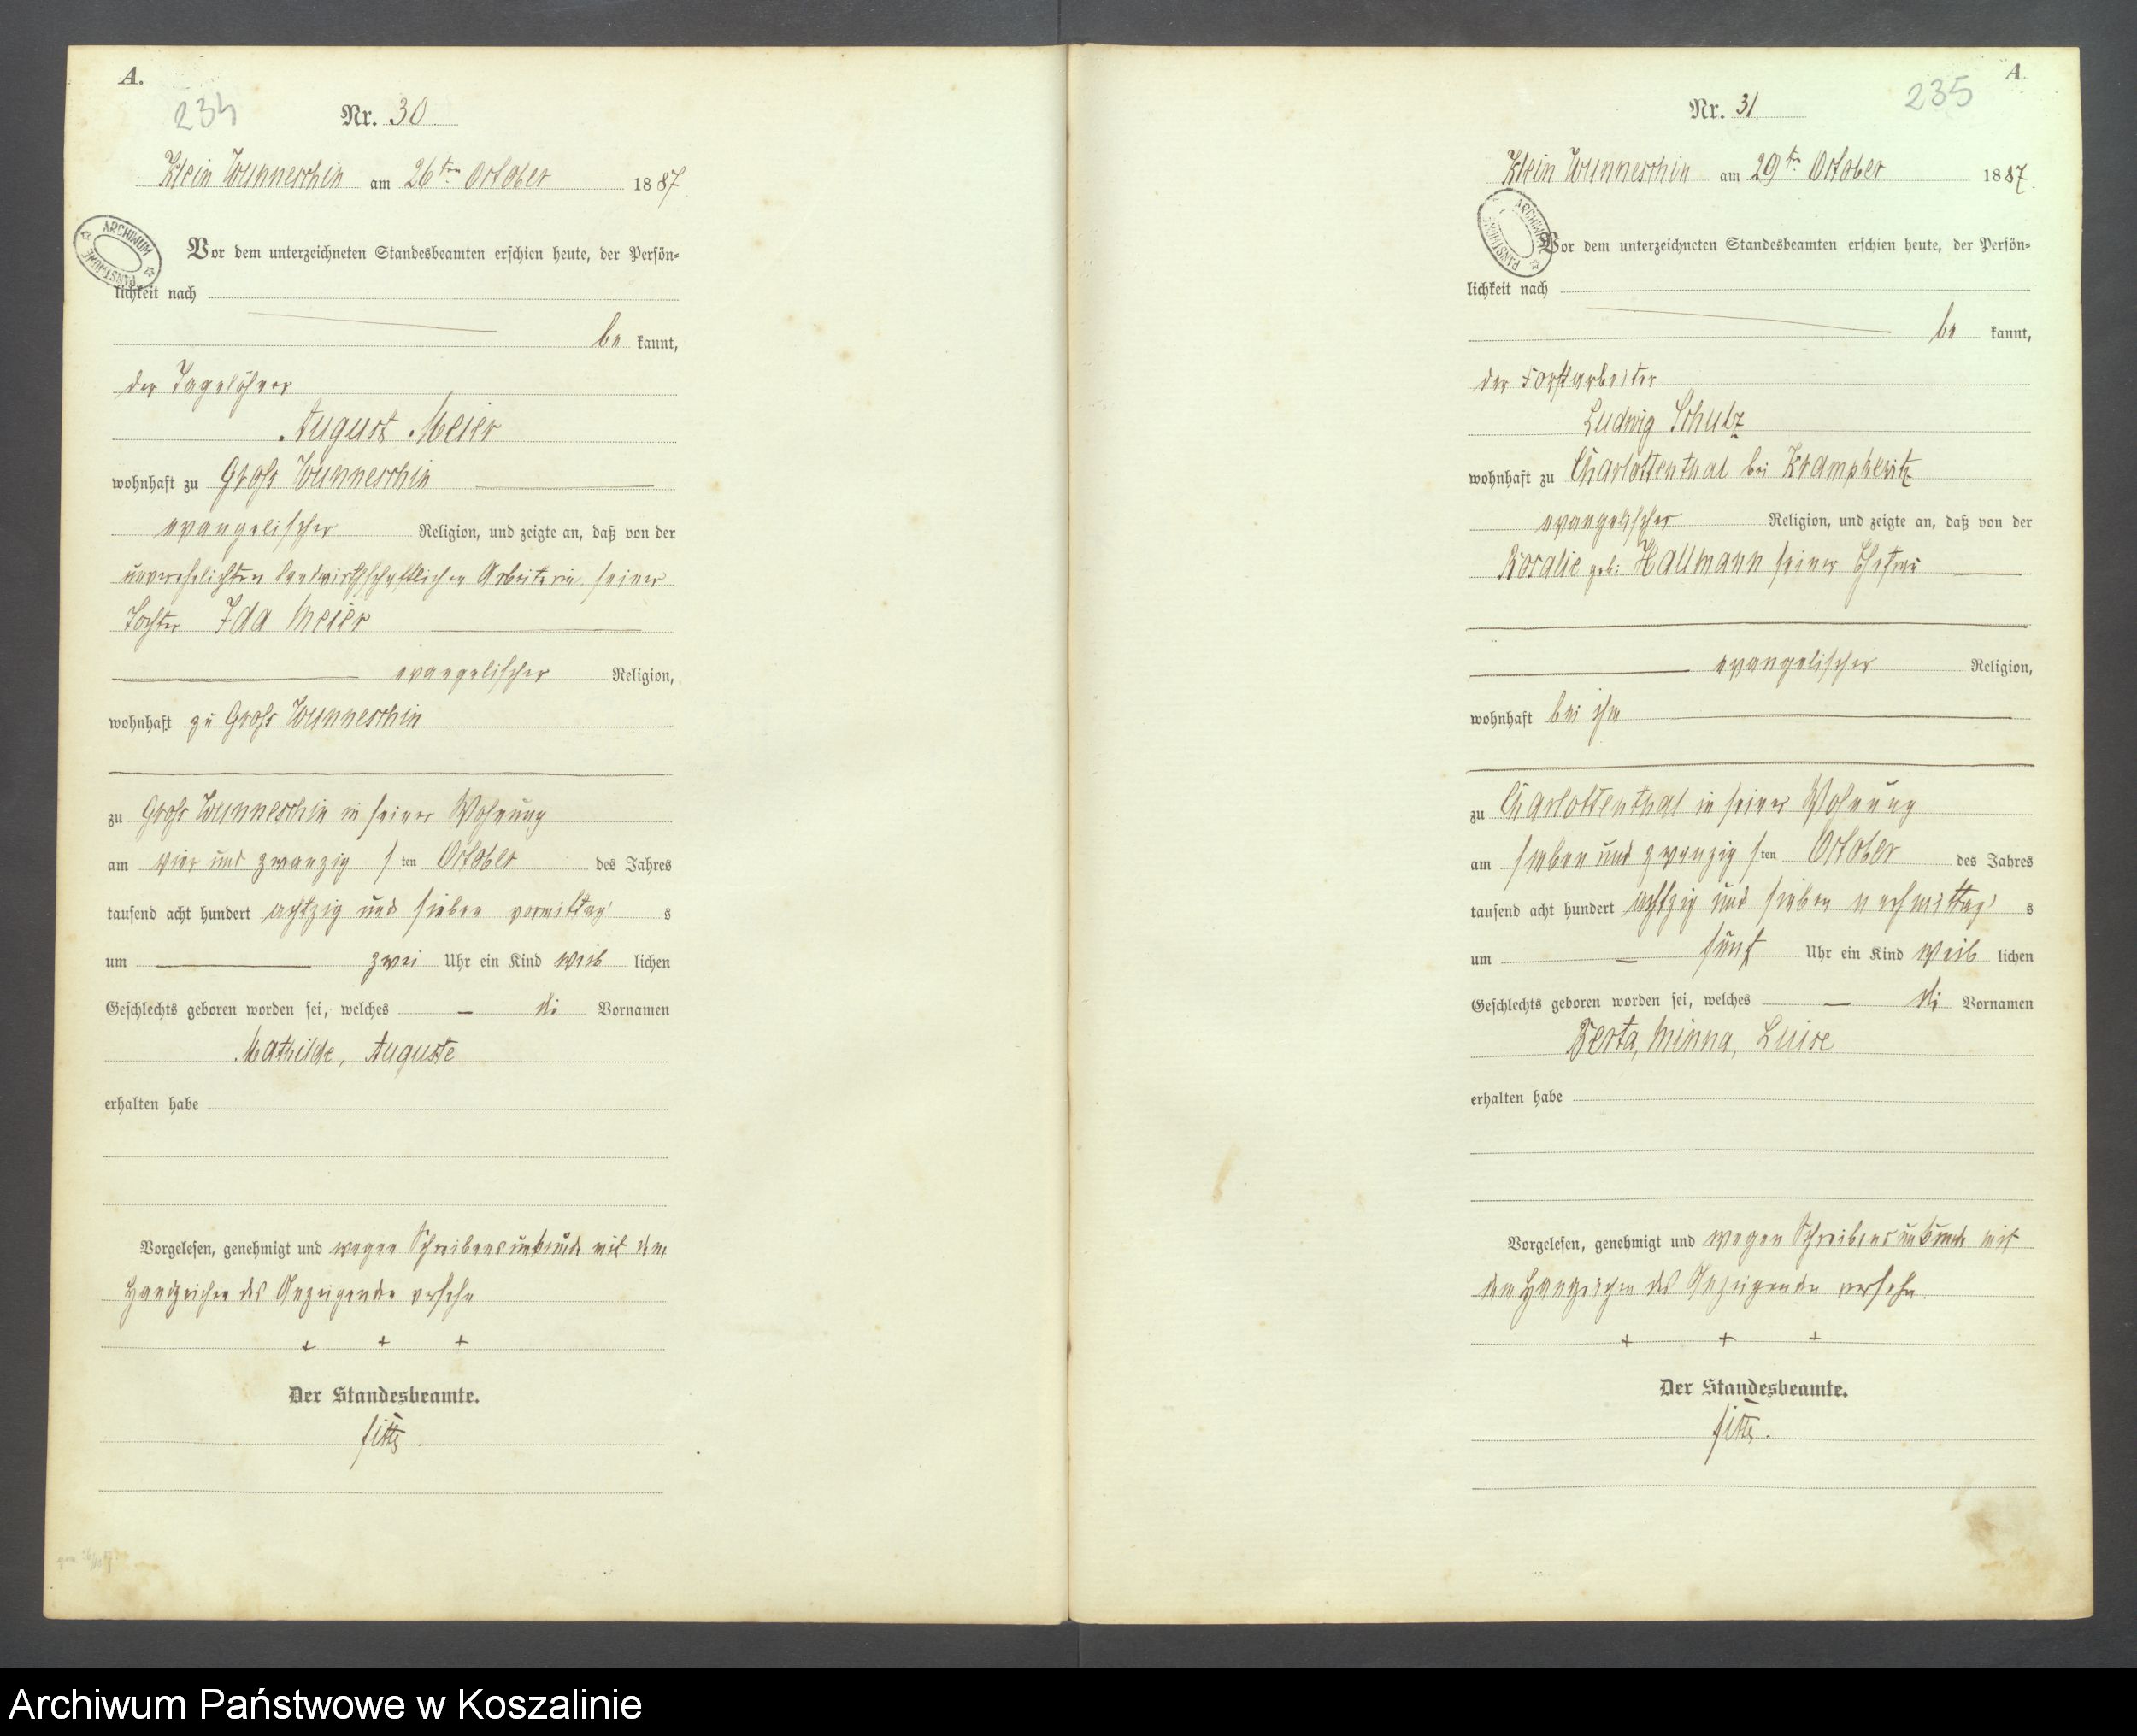 A.
234
Nr. 30
Klein Wunneschin am 26ten October 1887
ARCHIWUM PAŃSTWOWE
Vor dem unterzeichneten Standesbeamten erschien heute, der Persön=
lichkeit nach
be kannt,
der Tagelöhner
August Meier
wohnhaft zu Groß Wunneschin
evangelischer Religion, und zeigte an, daß von der
unverehelichten landwirthschaftlichen Arbeiterin seiner
Tochter Ida Meier
evangelischer Religion,
wohnhaft zu Groß Wunneschin
zu Groß Wunneschin in seiner Wohnung
am vier und zwanzig sten October des Jahres
tausend acht hundert achtzig und sieben vormittag s
um zwei Uhr ein Kind weib lichen
Geschlechts geboren worden sei, welches die Vornamen
Mathilde, Auguste
erhalten habe
Vorgelesen, genehmigt und wegen Schreibensunkunde mit dem
Handzeichen des Anzeigenden versehn
+ + +
Der Standesbeamte.
A
235
Nr. 31
Klein Wunneschin am 29ten October 1887.
ARCHIWUM PAŃSTWOWE
Vor dem unterzeichneten Standesbeamten erschien heute, der Persön=
lichkeit nach
be kannt,
der Forstarbeiter
Ludwig Schulz
wohnhaft zu Charlottenthal bei Krampkewitz
evangelischer Religion, und zeigte an, daß von der
Rosalie geb: Hallmann seiner Ehefrau
evangelischer Religion,
wohnhaft bei ihm
zu Charlottenthal in seiner Wohnung
am sieben und zwanzig sten October des Jahres
tausend acht hundert achtzig und sieben nachmittag s
um fünf Uhr ein Kind weib lichen
Geschlechts geboren worden sei, welches die Vornamen
Berta, Minna, Luise
erhalten habe
Vorgelesen, genehmigt und wegen Schreibensunkunde mit
dem Handzeichen des Anzeigenden versehn.
+ + +
Der Standesbeamte.
Archiwum Państwowe w Koszalinie